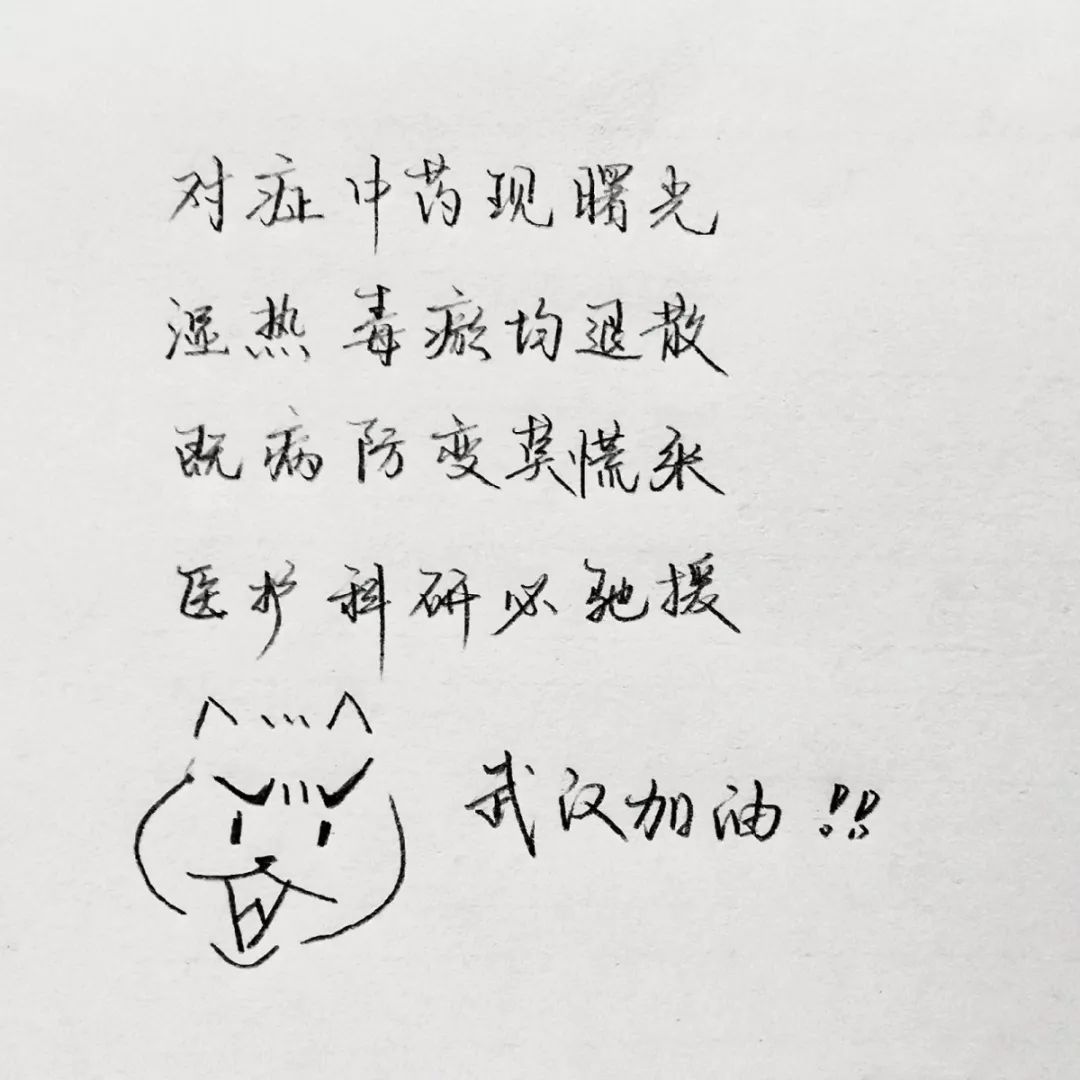 对症中药现曙光
湿热毒瘀均退散
既病防变莫慌乱
医护科研必驰援
武汉加油!!